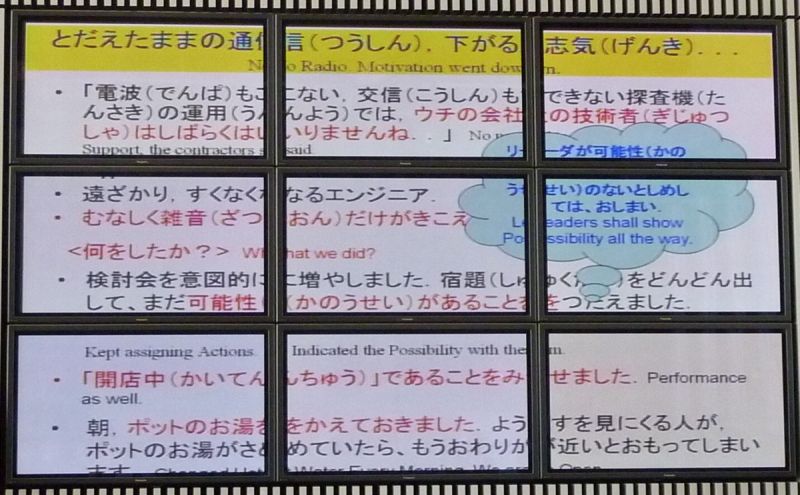 とだえたままの通信(つうしん),下がる志気(げんき)...
No Radio. Motivation went down.
・「電波(でんぱ)もこない,交信(こうしん)もできない探査機(た
んさき)の運用(うんよう)では,ウチの会社の技術者(ぎじゅつ
しゃ)はしばらくはいりませんね..」 No
Support, the contractors said.
リーダが可能性(かの
うせい)のないとしめし
ては、おしまい.
Leaders shall show
Possibility all the way.
・遠ざかり,すくなくなるエンジニア.
・むなしく雑音(ざつおん)だけがきこえ
<何をしたか?> What we did?
・検討会を意図的に増やしました.宿題(しゅくだい)をどんどん出
して、まだ可能性(かのうせい)があることをつたえました.
Kept assigning Actions. Indicated the Possibility with them.
・「開店中(かいてんちゅう)」であることをみせました. Performance
as well.
・朝,ポットのお湯をかえておきました.ようすを見にくる人が,
ポットのお湯がさめていたら、もうおわりが近いとおもってしまい
ます. Changed Hot Water Every Morning. We are Open.